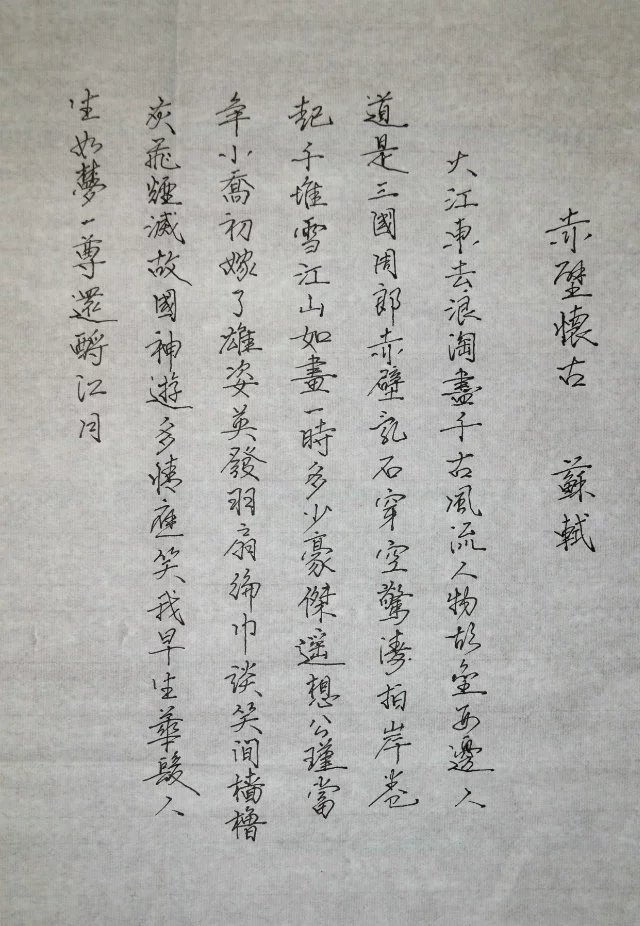 赤壁懷古　蘇軾
大江東去浪淘盡千古風流人物故壘西邊人
道是三國周郎赤壁亂石穿空驚濤拍岸卷
起千堆雪江山如畫一時多少豪傑遥想公瑾當
年小喬初嫁了雄姿英發羽扇綸巾談笑間檣櫓
灰飛煙滅故國神遊多情應笑我早生華髮人
生如夢一尊還酹江月